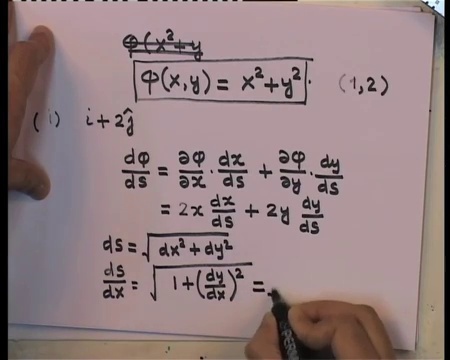 φ(x²+y
φ(x,y) = x²+y². (1,2)
(i) i+2ĵ
dφ/ds = ∂φ/∂x · dx/ds + ∂φ/∂y · dy/ds
= 2x dx/ds + 2y dy/ds
ds = √(dx²+dy²)
ds/dx = √(1+(dy/dx)²) =